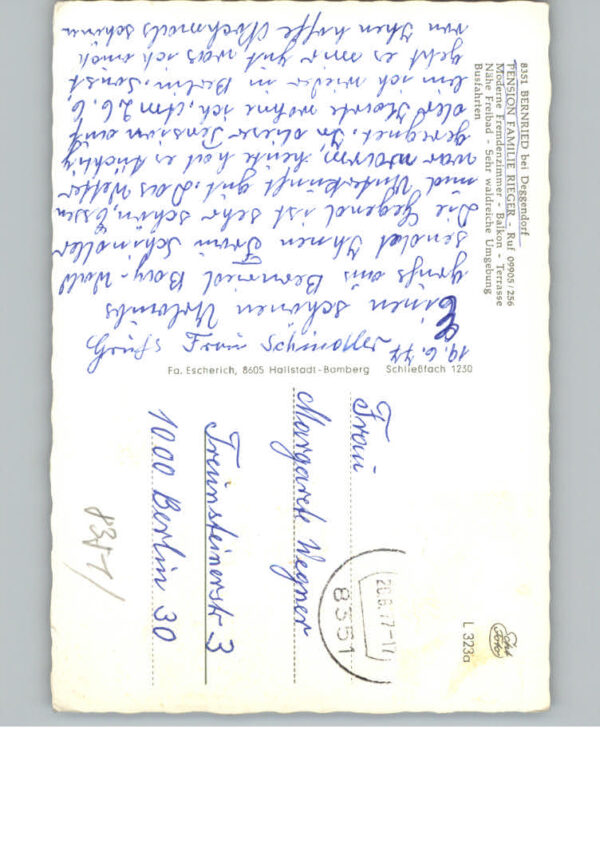 8351 BERNRIED bei Deggendorf
PENSION FAMILIE RIEGER - Ruf 09905/256
Moderne Fremdenzimmer - Balkon - Terrasse
Nähe Freibad - Sehr waldreiche Umgebung
Busfahrten
19.6.77
Einen schönen Urlaubs
gruß aus Bernried Bay-Wald
sendet Ihnen Frau Schindler
Die Gegend ist sehr schön, Essen
und Unterkunft gut. Das Wetter
war warm, heute hat es tüchtig
geregnet. In dieser Pension auf
der Karte wohne ich. Am 26.6.
bin ich wieder in Berlin. Sonst
geht es mir gut was ich auch
von Ihen hoffe Nochmals schönen
Gruß Frau Schindler
Fa. Escherich, 8605 Hallstadt-Bamberg Schließfach 1230
Frau
Margarete Wegner
Traunsteinerstr 3
1000 Berlin 30
20.6.77-17
8351
Echt Foto
L 323a